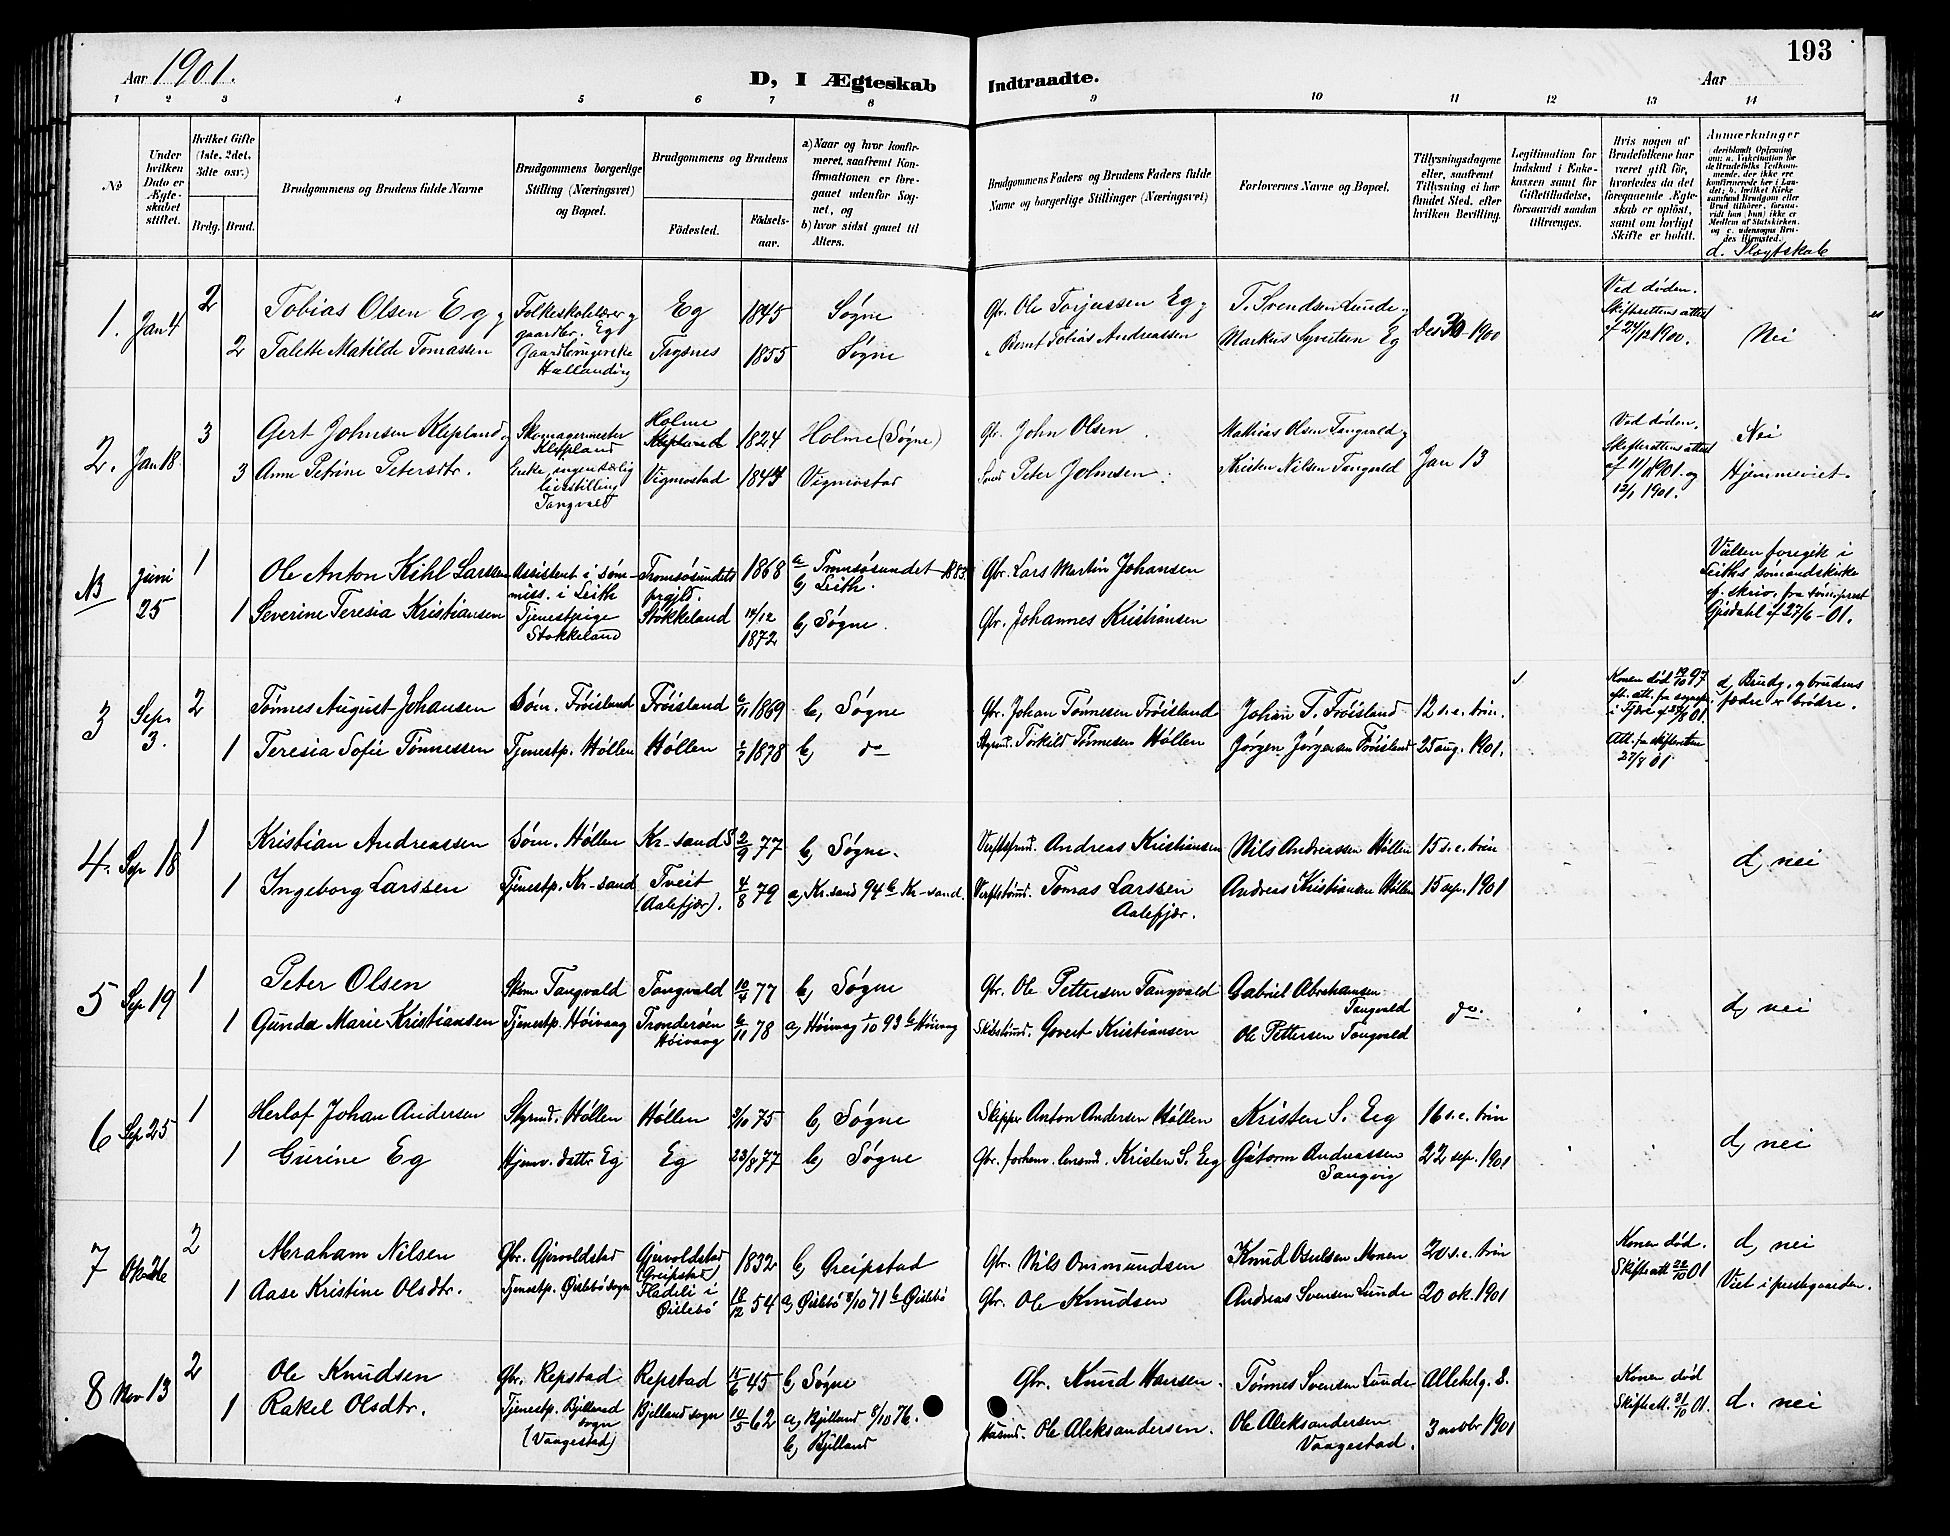 193
Aar 1901. D, I Ægteskab Indtraadte. Aar
1 2 3 4 5 6 7 8 9 10 11 12 13 14
№
Under hvilken Dato er Ægteskabet stiftet.
Hvilket Gifte (1ste, 2det, 3dte osv.)
Brdg. Brud.
Brudgommens og Brudens fulde Navne
Brudgommens borgerlige Stilling (Næringsvei) og Bopæl.
Brudgommens og Brudens
Fødested.
Fødselsaar.
a) Naar og hvor konfirmeret, saafremt Konfirmationen er foregaaet udenfor Sognet, og
b) hvor sidst gaaet til Alters.
Brudgommens Faders og Brudens Faders fulde Navne og borgerlige Stillinger (Næringsvei)
Forlovernes Navne og Bopæl.
Tillysningsdagene eller, saafremt Tillysning ei har fundet Sted, efter hvilken Bevilling.
Legitimation for Indskud i Enkekassen samt for Giftetilladelse, forsaavidt saadan tiltrænges.
Hvis nogen af Brudefolkene har været gift før, hvorledes da det foregaaende Ægteskab er opløst, samt om lovligt Skifte er holdt.
Anmærkninger
d. Slægtskab
1. Jan 4 2 Tobias Olsen Eg og Folkeskolelærer og gaardbr. Eg Eg 1845 Søgne Gbr. Ole Torjussen Eg og T. Svendsen Lunde og Des 30 1900 Ved døden. Skifterettens attest af 24/12 1900. Nei
2 Talette Matilde Tomassen Gaardbrugerske Hællandvig Tagsnes 1855 Søgne " Bernt Tobias Andreassen Markus Syvertsen Eg
2. Jan 18. 3 Gert Johnsen Klepland og Skomagermester Klepland Holme Klepland 1824 Holme (Søgne) Gbr. John Olsen Mathias Olsen Tangvald og Jan 13 Ved døden. Skifterettens attest af 11/1 1901 og 12/1 1901. Nei
3 Anne Petrine Petersdtr. Enke, ingen særlig livsstilling Tangvald Vigmostad 1844 Vigmostad Peter Johnsen. Kristen Nilsen Tangvald Hjemmeviet.
NB Juni 25 1 Ole Anton Kihl Larssen Assistent i sømmiss. i Leith Tromsøsundets prgjld. 1868 a Tromsøsundet 1883. b, Leith. Gbr. Lars Martin Johansen Vielsen foregik i Leiths sømandskirke ef. skriv. fra sømprest Gjesdahl af 27/6 - 01.
1 Severine Teresia Kristiansen Tjenestpige Stokkeland Stokkeland 14/12 1872 b, Søgne. Gbr. Johannes Kristiansen
3 Sep. 3. 2 Tønnes August Johansen Søm. Frøisland Frøisland 6/11 1869 b, Søgne Gbr. Johan Tønnesen Frøisland Johan T. Frøisland 12 s. e. trin. Konen død 19/10 97 d, Brudg. og brudens fædre er brødre.
1 Teresia Sofie Tønnessen Tjenestp. Høllen Høllen 1878 b, do Styrmd. Torkild Tønnesen Høllen Jørgen Jørgensen Frøisland 25 aug. 1901. Att. fra skifteretten 27/8 01
4. Sep 18 1 Kristian Andreassen Søm. Høllen Kr-sand S 2/9 77 b, Søgne. Andreas Kristiansen Nils Andreassen Høllen 15 s. e. trin d, nei
1 Ingeborg Larssen Tjenestp. Kr-sand Tveit (Aalefjær). 4/8 79 a, Kr.sand 94 b Kr-sand. Tomas Larssen Aalefjær. Andreas Kristiansen Høllen 15 sep. 1901
5 Sep 19 1 Peter Olsen Skom Tangvald Tangvald 10/4 77 b, Søgne Gbr. Ole Pettersen Tangvald Gabriel Abrahamsen Tangvald do. d, nei
1 Gunda Marie Kristiansen Tjenestp. Høivaag Trønderøen Høivaag 6/11 78 a, Høivaag 1/10 93 b Høivaag Govert Kristiansen Ole Pettersen Tangvald
6 Sep 25 1 Herlof Johan Andersen Styrmd. Høllen Høllen 3/10 75 b, Søgne Skipper Anton Andersen Høllen Kristen S. Eeg 16 s. e. trin d, nei
1 Gurine Eg Hjemv. datter Eg Eg 23/8 77 b, Søgne Gbr. forhenv. lensmd. Kristen S. Eeg Gutorm Andreassen Langvig 22 sep. 1901
7 2 Abraham Nilsen Gbr. Gjervoldstad Gjervoldstad (Greipstad) 1832 b, Greipstad Gbr. Nils Ommundsen Knud Osulsen Monen 20 s. e. trin Konen død. Skifteatt 22/10 01 d, nei
1 Aase Kristine Olsdtr. Tjenestp. Øislebø sogn Fladeli i Øislebø 18/12 54 a, Øislebø 8/10 71 b Øislebø Gbr. Ole Knudsen Andreas Svensen Lunde 20 ok. 1901 Viet i prestegaarden.
8 Nov 13 2 Ole Knudsen Gbr. Repstad Repstad 15/6 45 b, Søgne Gbr. Knud Hansen. Tønnes Svensen Lunde Allehelg. S. Konen død Skifteatt. 31/10 01. d. nei
1 Rakel Olsdtr. Tjenestp. Bjelland sogn (Vaagestad) Bjelland sogn 10/5 62 a, Bjelland 8/10 76. b, Bjelland Husmd. Ole Aleksandersen. Ole Aleksandersen Vaagestad. 3 novbr 1901